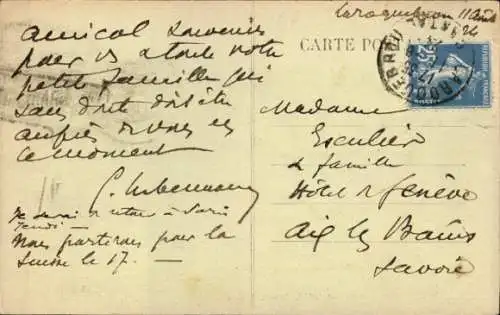 11 Août
24
CARTE POSTALE
25c
amical souvenir
pour vs et toute votre
petite famille qui
sans doute doit être
auprès de vous en
ce moment
Je serai de retour à Paris
jeudi -
Nous partirons pour la
Suisse le 17 -
Madame
Esculier
& famille
Hôtel Genève
Aix les Bains
Savoie